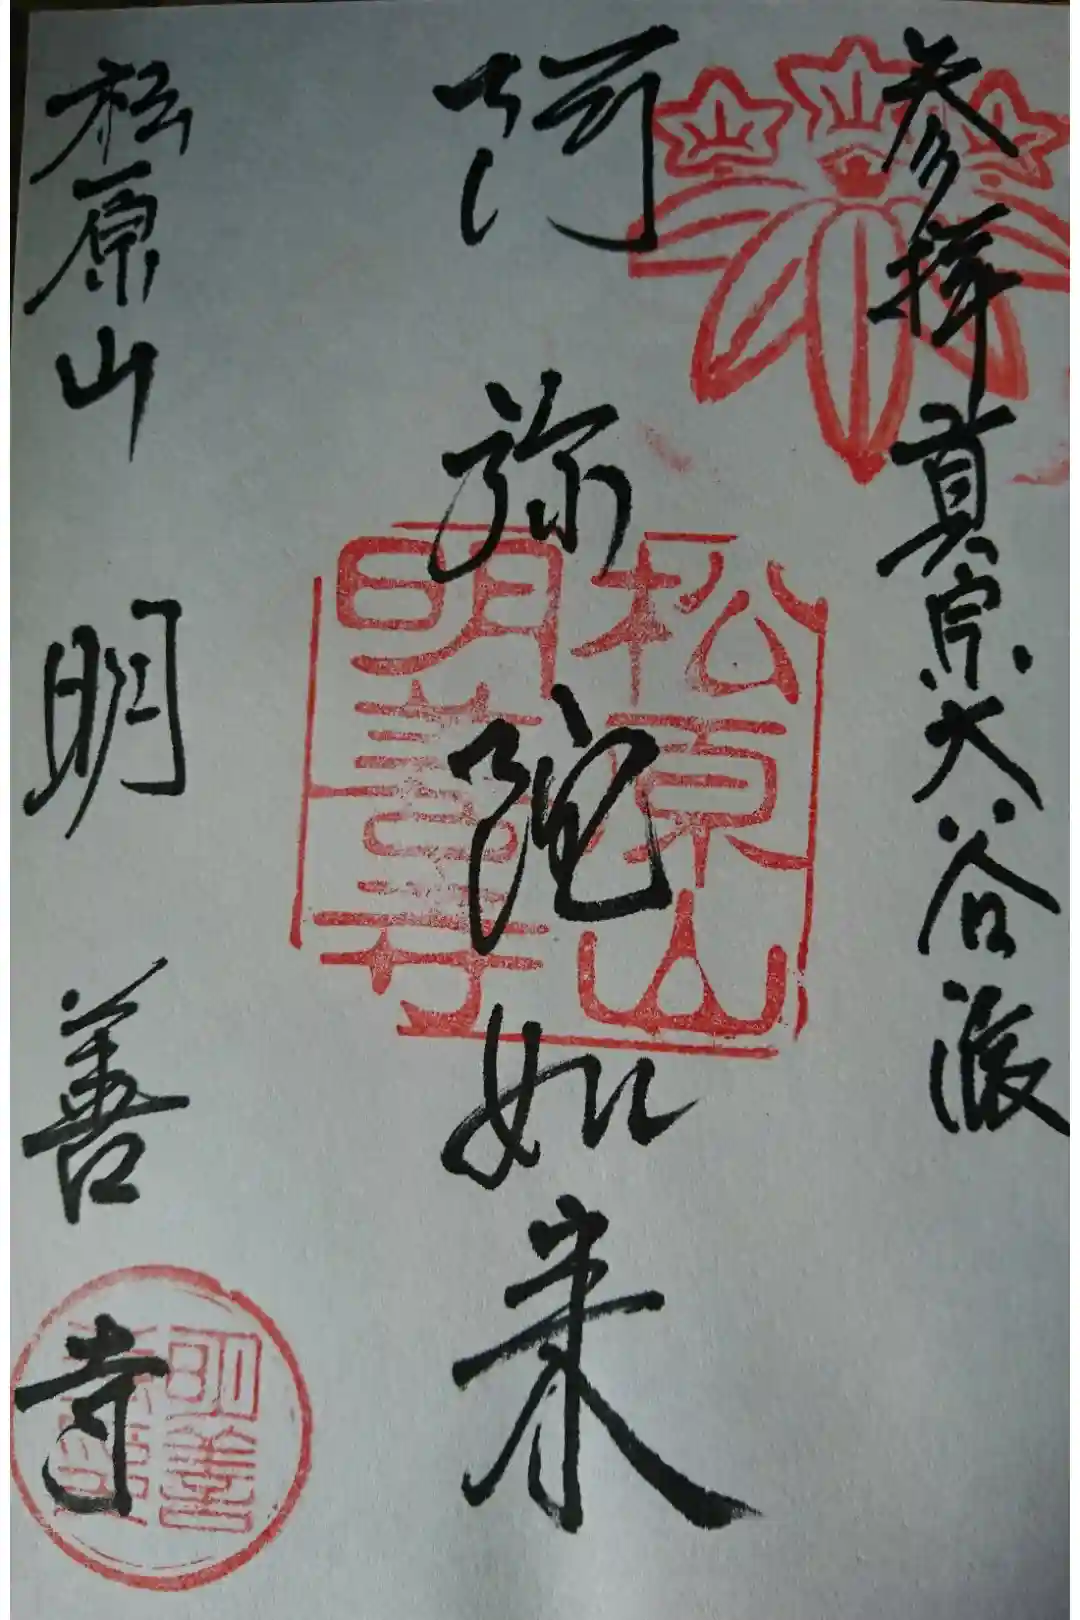 参拝 真宗大谷派
阿弥陀如来
松原山
明善寺
松原山
明善寺